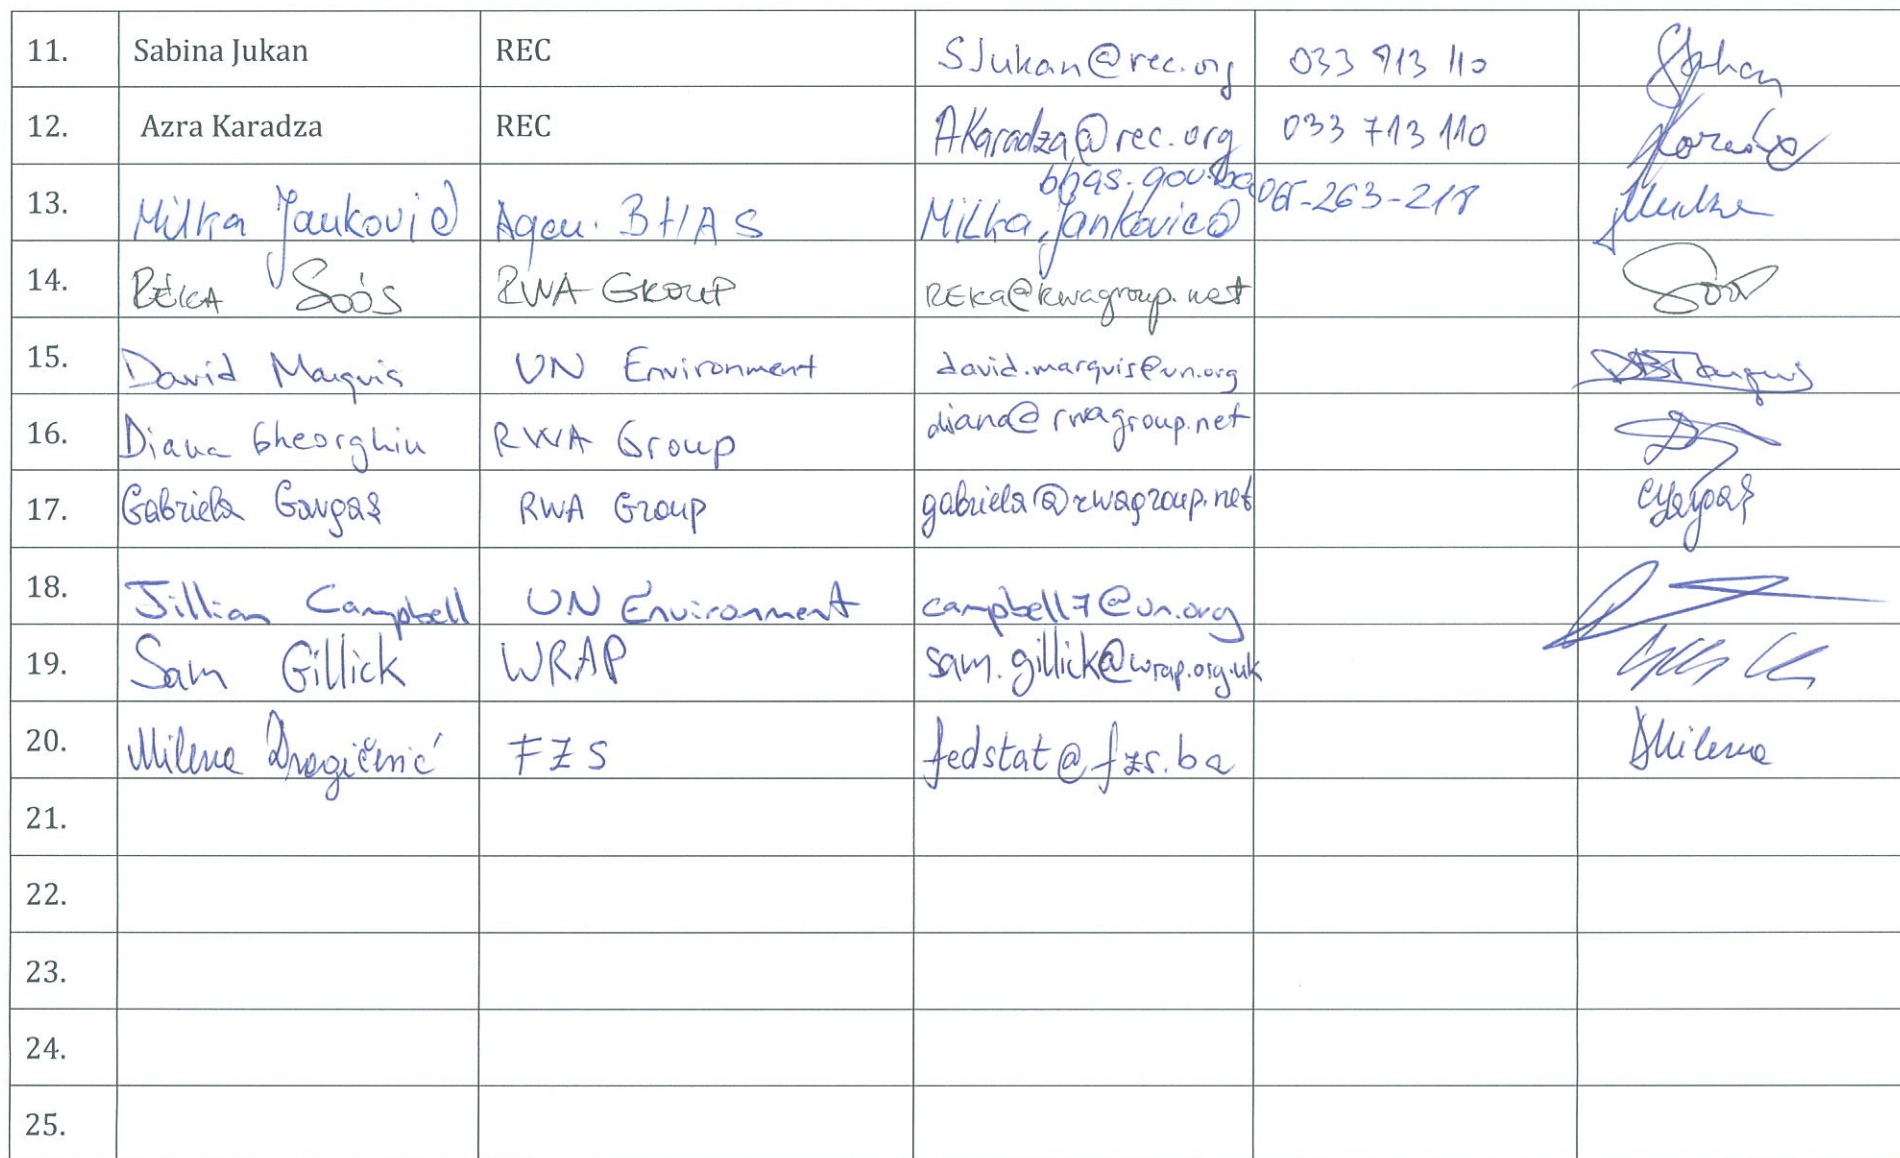 11. Sabina Jukan REC SJukan@rec.org 033 713 110
12. Azra Karadza REC AKaradza@rec.org 033 713 110
bhas.gov.ba
13. Milka Janković Agen. BHAS Milka.Jankovic@ 065-263-218
14. Réka Soós RWA Group Reka@rwagroup.net
15. David Marquis UN Environment david.marquis@un.org
16. Diana Gheorghiu RWA Group diana@rwagroup.net
17. Gabriela Gavgaș RWA Group gabriela@rwagroup.net
18. Jillian Campbell UN Environment campbell7@un.org
19. Sam Gillick WRAP sam.gillick@wrap.org.uk
20. Milena Dragičević FZS fedstat@fzs.ba DMilena
21.
22.
23.
24.
25.